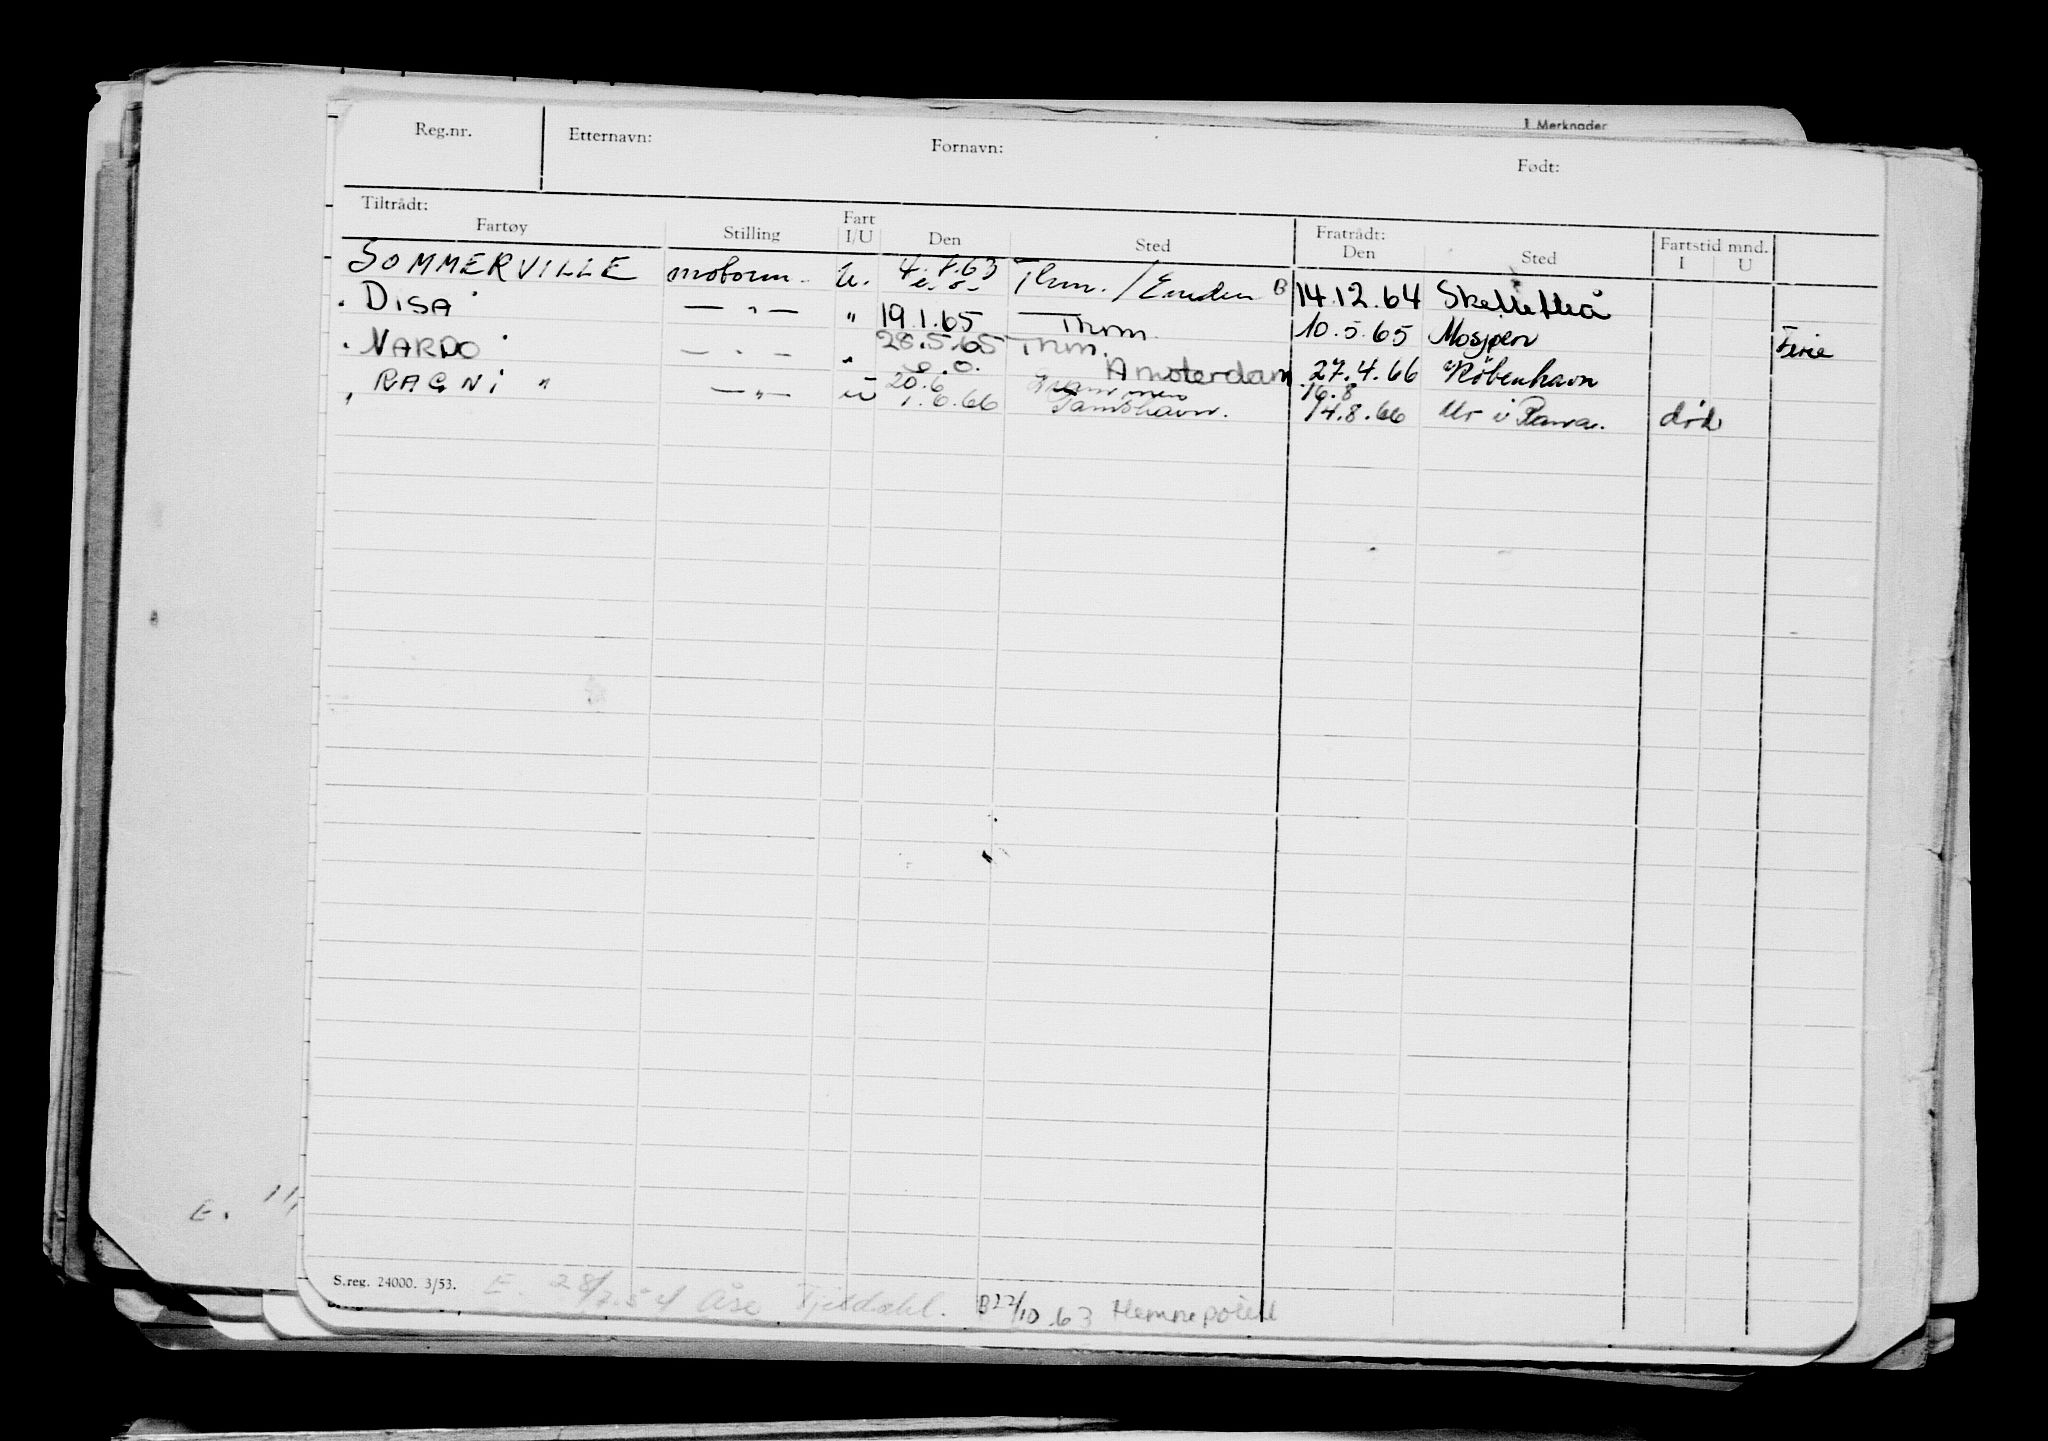 1 Merknader
Reg.nr. Etternavn: Fornavn: Født:
Tiltrådt: Fratrådt: Fartstid mnd.
Fartøy Stilling Fart I/U Den Sted Den Sted I U
SOMMERVILLE motorm. U. 63 Thm. / Emden B 14.12.64 Skellefteå
" DISA " — " — " 19.1.65 Thrm. 10.5.65 Mosjøen Ferie
" VARDO " — " — " 28.5.65 Thrm. Amsterdam 27.4.66 København
" RAGNI " — " — U 20.6 16.8
1.6.66 14.8.66 død
E. 11,
S.reg. 24000. 3/53. E. 28/7.54 Åse B22/10.63